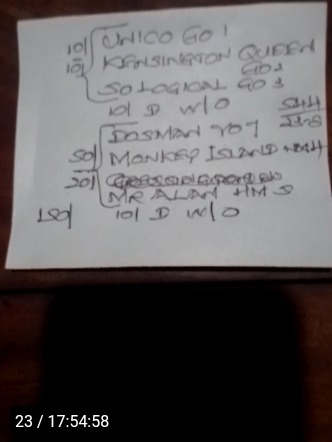 10/ UNICO GO 1
10/ KENSINGTON QUEEN
GO 2
SO LOGICAL GO 3
10/ D W/O
DOSMAN YO 7
50/ MONKEY ISLAND HM4
20/
MR ALAN HM 5
150/ 10/ D W/O
23 / 17:54:58